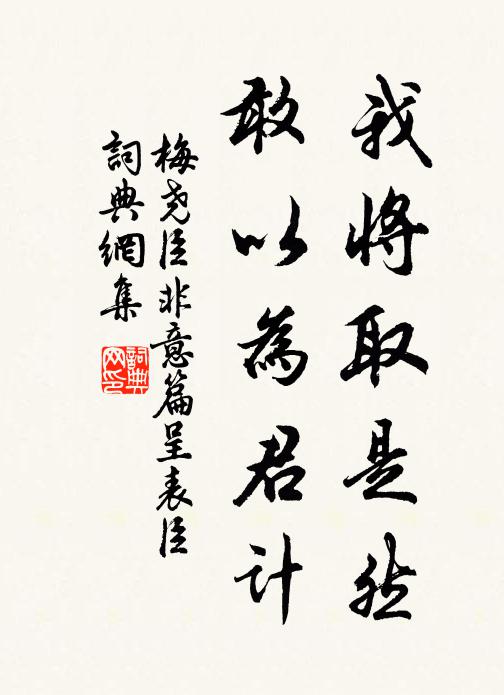 我將取是然
敢以為君計
梅堯臣非意篇呈表臣
詞典網集
詞典網印